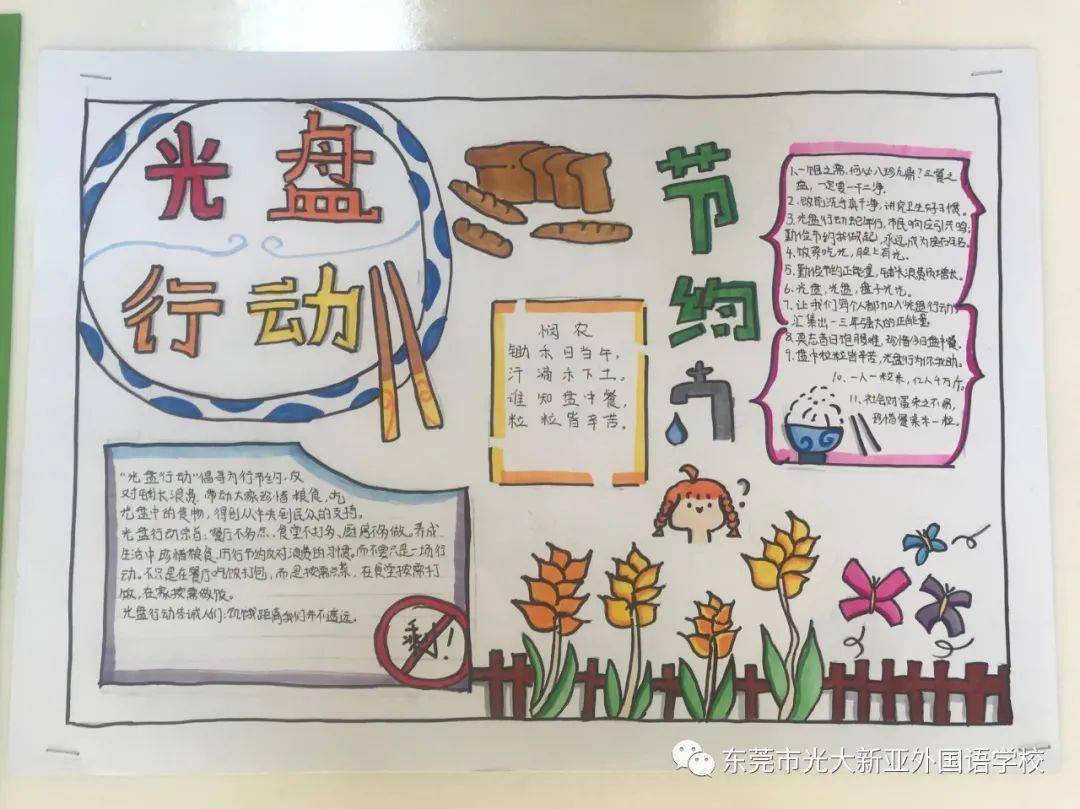 光盘
行动
节约
悯农
锄禾日当午,
汗滴禾下土。
谁知盘中餐,
粒粒皆辛苦。
1.一日之需,何必八珍九鼎?三餐之
盘,一定要一干二净.
2.饭前洗手真干净,讲究卫生好习惯。
3.光盘行动蛇年行,市民响应引共鸣;
勤俭节约我做起,永远成为座右铭。
4.饭菜吃光,脸上有光。
5.勤俭节约正能量,铺张浪费负增长。
6.光盘,光盘,盘子光光.
7.让我们每个人都加入光盘行动,
汇集出一三年强大的正能量
8.莫忘昔日饱腹难,珍惜今日盘中餐。
9.盘中粒粒皆辛苦,光盘行为你我助。
10.一人一粒米,亿人千万斤。
11.社会财富来之不易,
珍惜餐桌米一粒。
“光盘行动”倡导厉行节约,反
对铺张浪费,带动大家珍惜粮食,吃
光盘中的食物,得到从中央到民众的支持。
光盘行动宗旨:餐厅不多点、食堂不多打、厨房不多做。养成
生活中珍惜粮食、厉行节约反对浪费的习惯。而不要只是一场行
动。不只是在餐厅吃饭打包,而是按需点菜,在食堂按需打
饭,在家按需做饭。
光盘行动告诫人们:饥饿距离我们并不遥远。
剩!
东莞市光大新亚外国语学校